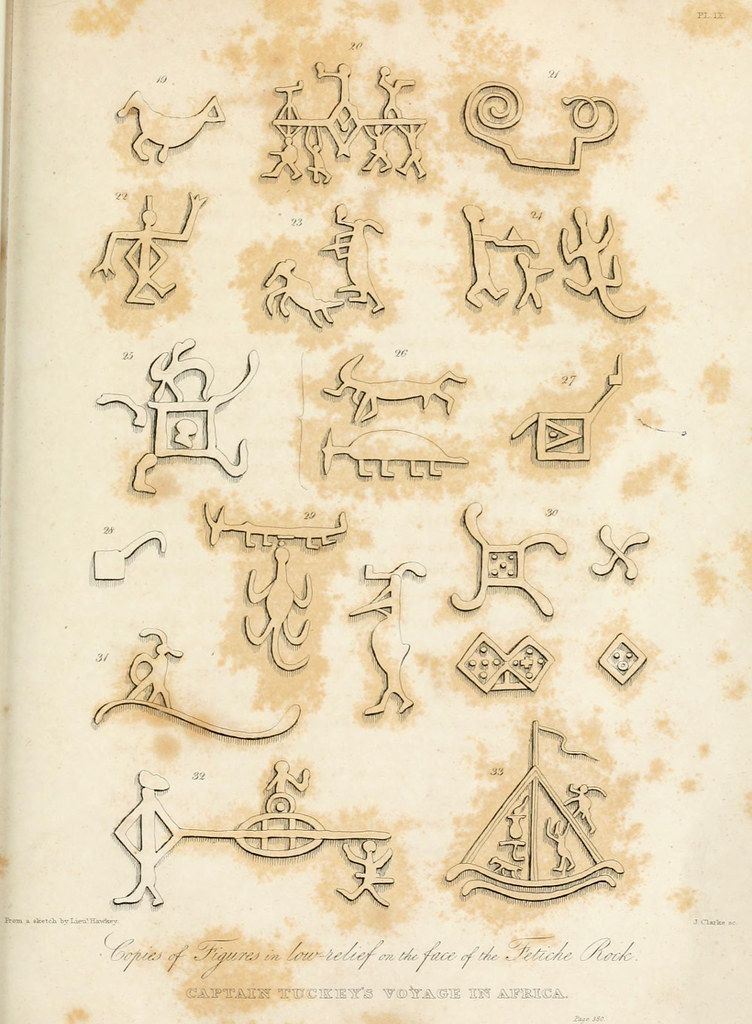 PL. IX.
19
20
21
22
23
24
25
26
27
28
29
30
31
32
33
From a sketch by Lieut. Hawkey.
J. Clarke sc.
Copies of Figures in low-relief on the face of the Fetiche Rock.
CAPTAIN TUCKEY'S VOYAGE IN AFRICA.
Page 380.